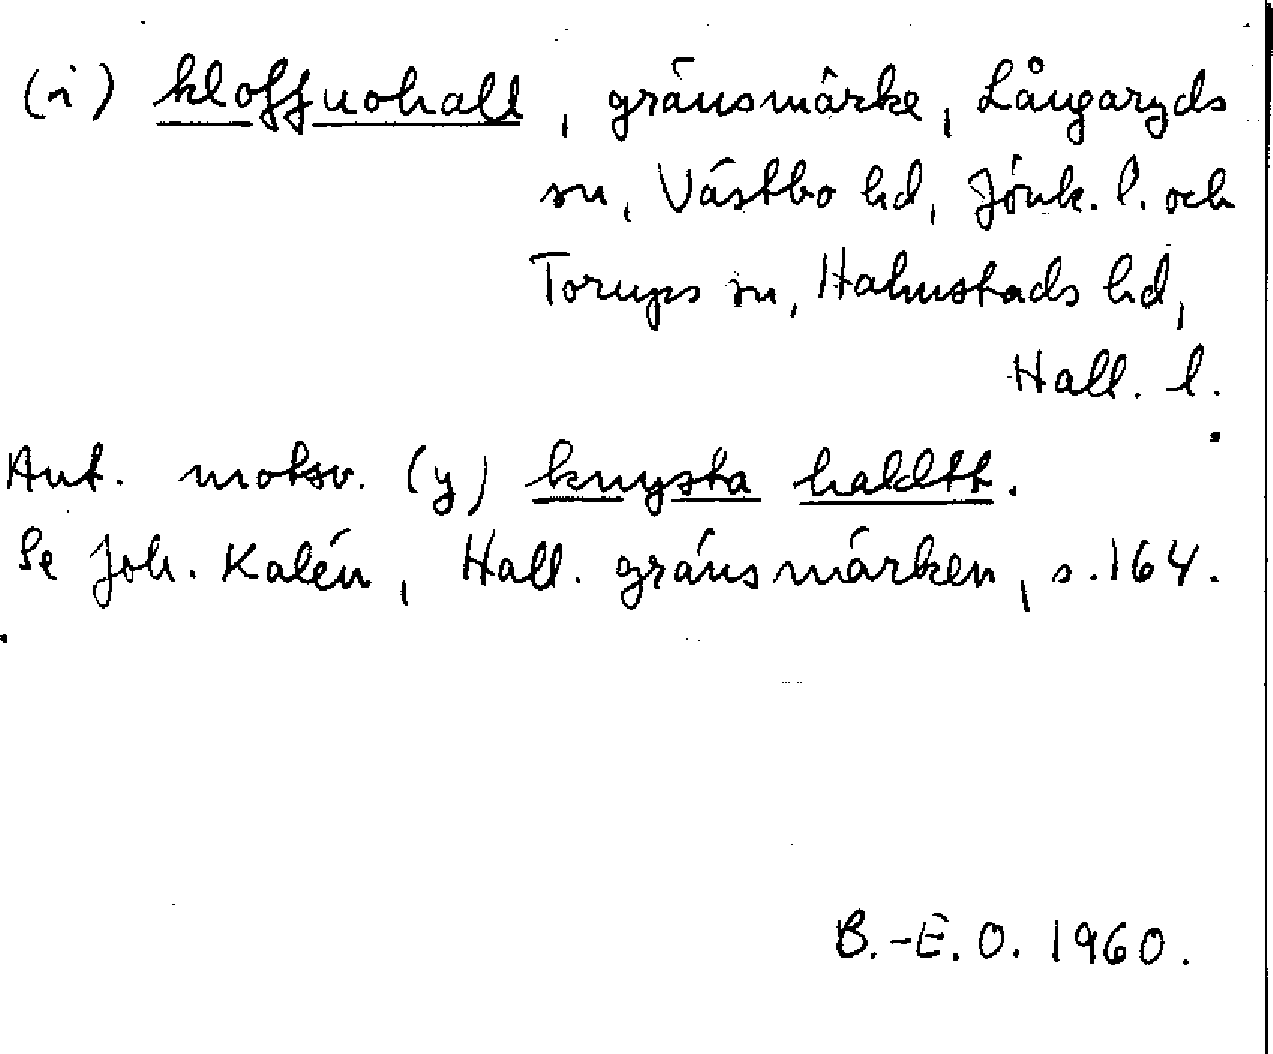 (i) kloffuohall, gränsmärke, Långaryds
sn, Västbo hd, Jönk. l. och
Torups sn, Halmstads hd,
Hall. l.
Ant. motsv. (y) knysta haldtt.
Se Joh. Kalén, Hall. gränsmärken, s. 164.
B.-E. O. 1960.